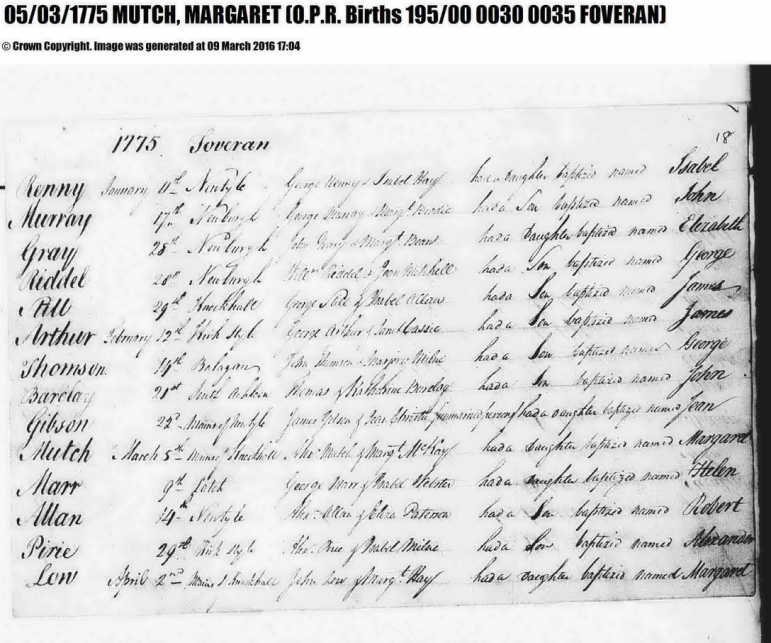 05/03/1775 MUTCH, MARGARET (O.P.R. Births 195/00 0030 0035 FOVERAN)
© Crown Copyright. Image was generated at 09 March 2016 17:04
18
1775 Foveran
Renny January 11th Newtyle George Renny & Isobel Hay had a Daughter baptized named Isabel
Murray 17th Newburgh George Murray & Margt. had a Son baptized named John
Gray 28th Newburgh John Gray & Margt. had a Daughter baptized named Elizabeth
Riddel 28th Newburgh Willm Riddel & Jean Mitchell had a Son baptized named George
29th Knockhall George & Isabel had a Son baptized named James
Arthur February 12th Kirk Style George Arthur & Janet Cassie had a Son baptized named James
Thomson 14th John Thomson & Marjory Milne had a Son baptized named George
Barclay 21st Thomas & Katharine Barclay had a Son baptized named John
Gibson 22d Mains of Newtyle James Gibson & Jean had a Daughter baptized named Jean
Mutch March 5th Knockhall Mutch & Margt. McKay had a Daughter baptized named Margaret
Marr 9th George Marr & Isabel Webster had a Daughter baptized named Helen
Allan 14th Newtyle Allan & Eliza Paterson had a Son baptized named Robert
Pirie 29th Kirk Style Pirie & Isabel Milne had a Son baptized named Alexander
Low April 2nd Mains of Knockhall John Low & Margt. Hay had a Daughter baptized named Margaret